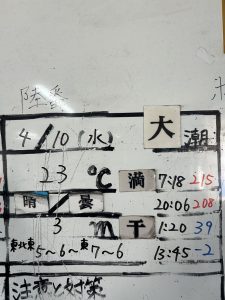 陸番
4/10(水) 大潮
23℃ 満 7:18 215
晴/曇 20:06 208
3m 干 1:20 39
東北東5～6～東7～6 13:45 -2
注意と対策